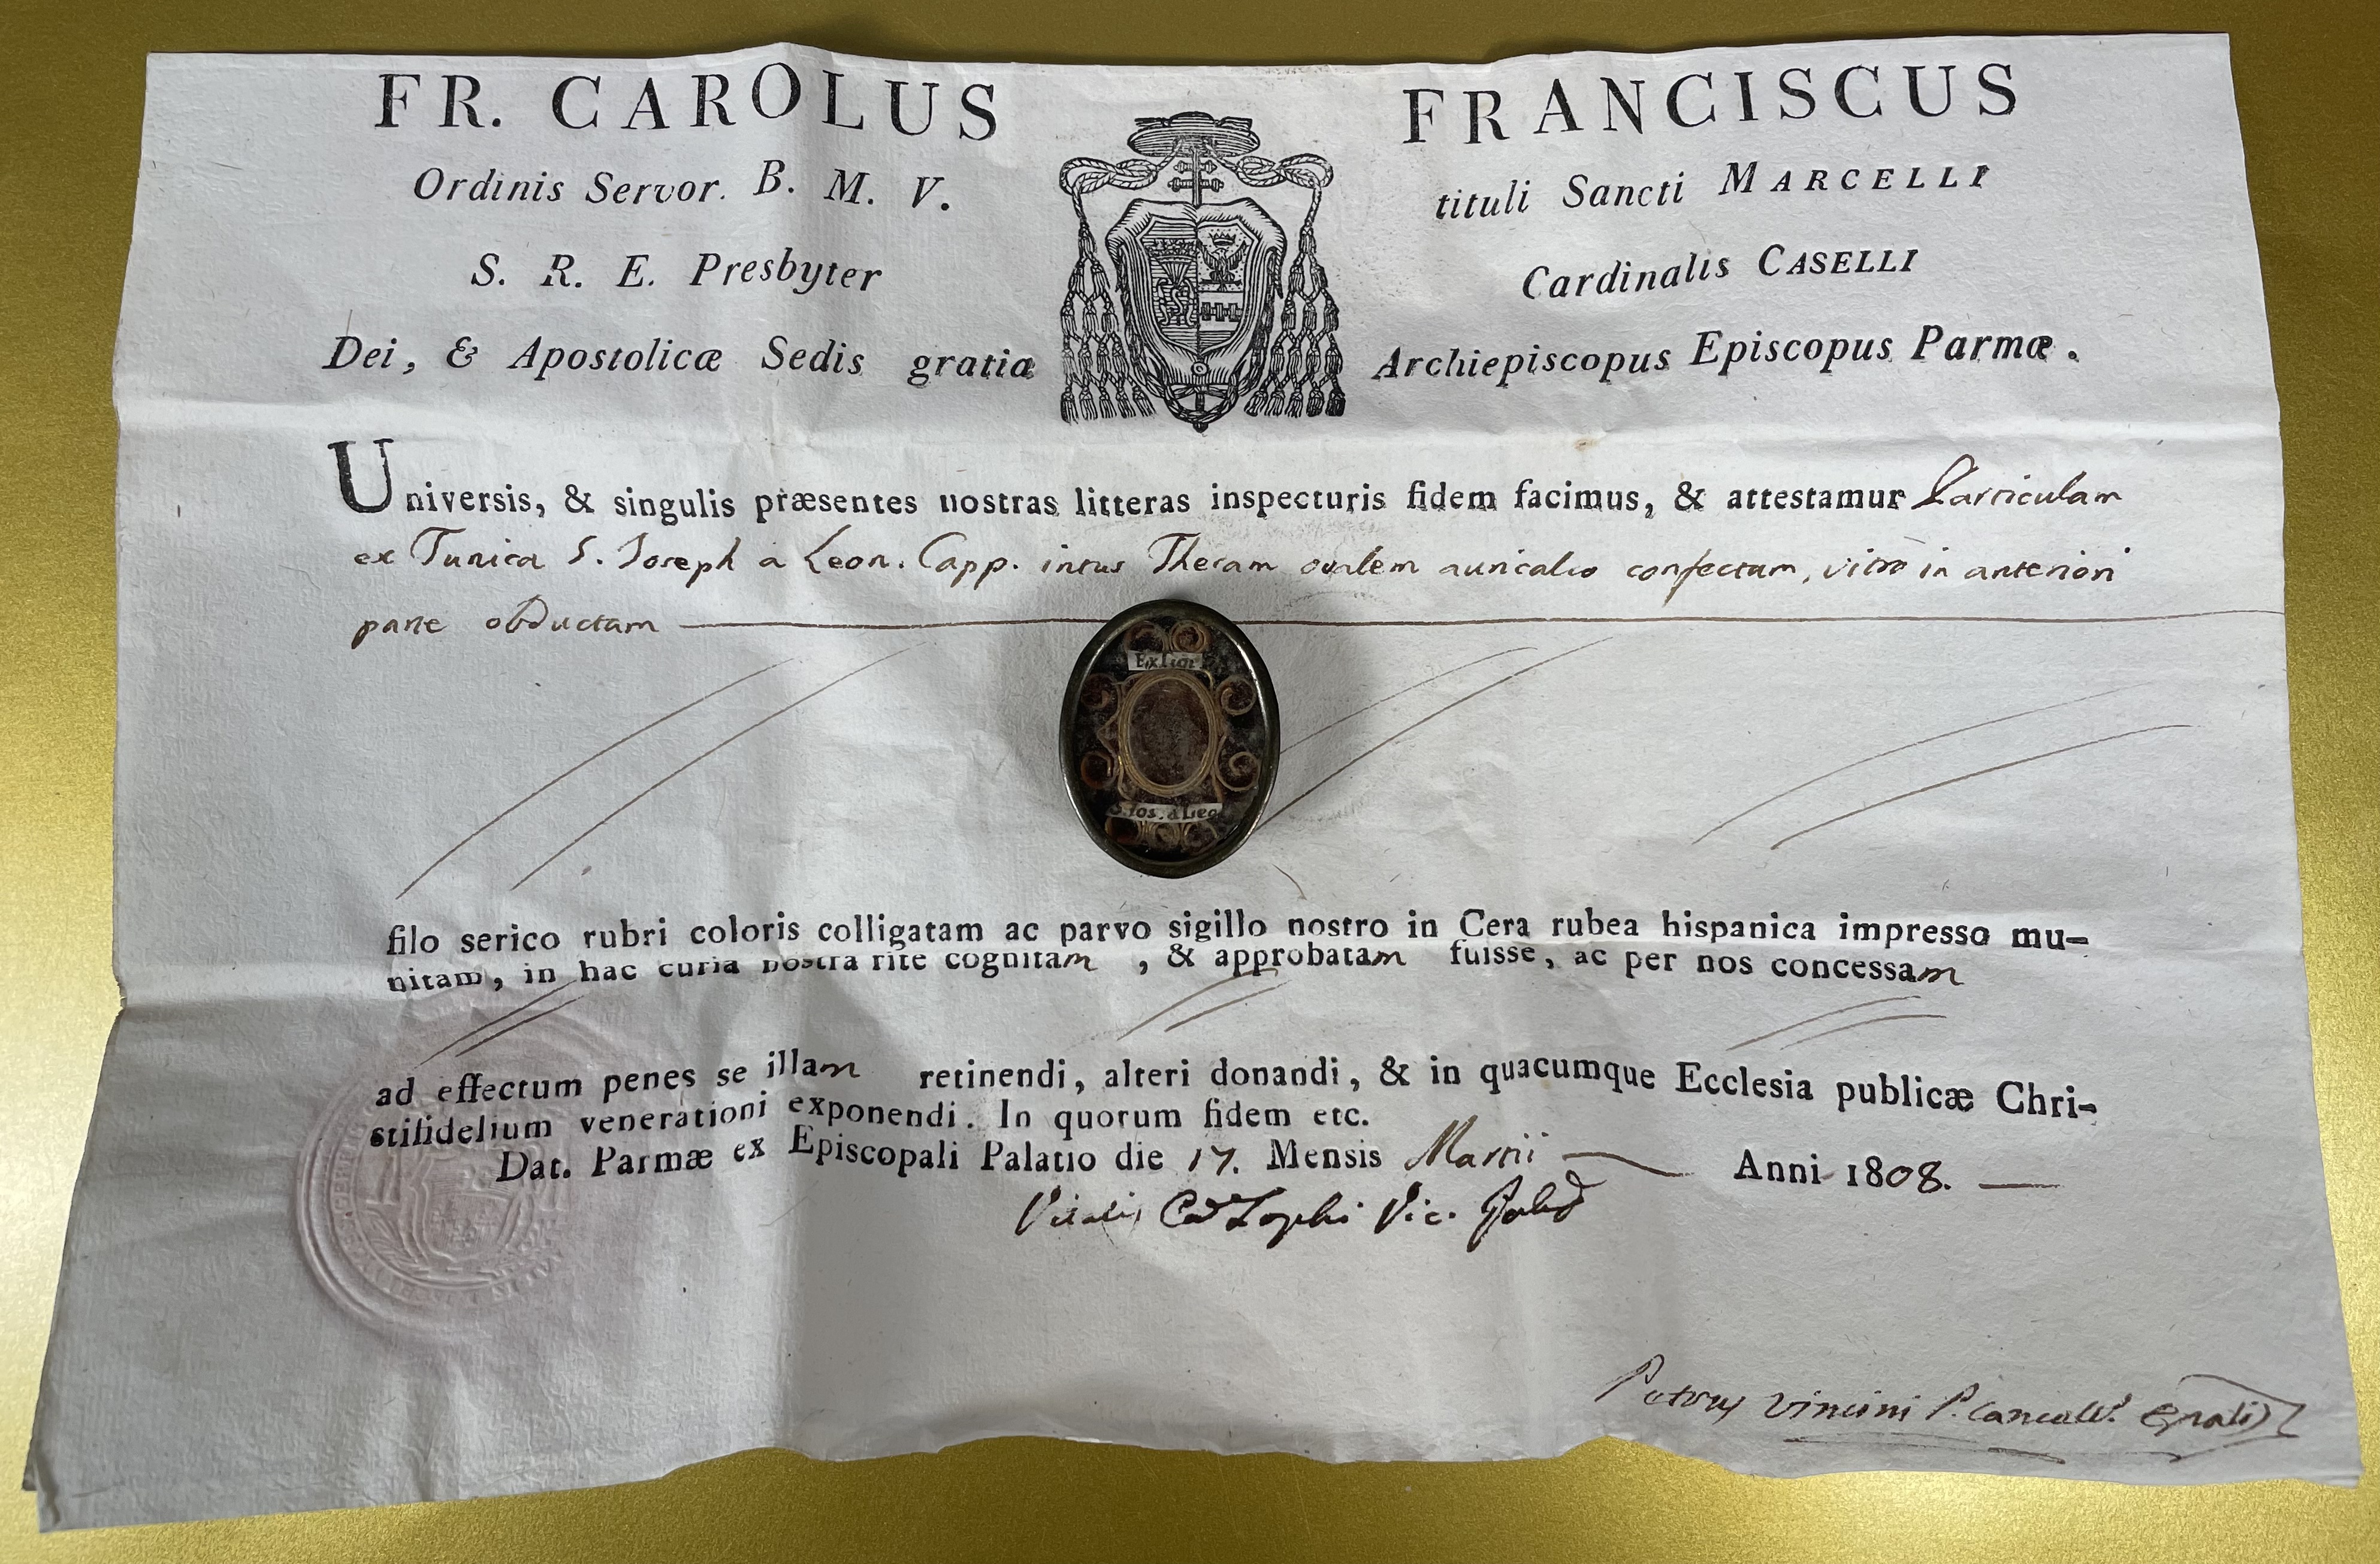 FR. CAROLUS FRANCISCUS
Ordinis Servor. B. M. V. tituli Sancti MARCELLI
S. R. E. Presbyter Cardinalis CASELLI
Dei, & Apostolicæ Sedis gratia Archiepiscopus Episcopus Parmæ.
Universis, & singulis præsentes nostras litteras inspecturis fidem facimus, & attestamur Particulam
ex Tunica S. Joseph a Leon. Capp. intus Thecam ovalem auricalco confectam, vitro in anteriori
parte obductam
Ex Tun
S. Jos. a Leo
filo serico rubri coloris colligatam ac parvo sigillo nostro in Cera rubea hispanica impresso mu-
nitam, in hac curia nostra rite cognitam, & approbatam fuisse, ac per nos concessam
ad effectum penes se illam retinendi, alteri donandi, & in quacumque Ecclesia publicæ Chri-
stifidelium venerationi exponendi. In quorum fidem etc.
Dat. Parmæ ex Episcopali Palatio die 17. Mensis Martii Anni 1808.
Vitalis Vic.
Petrus Vincini P. Cancell.